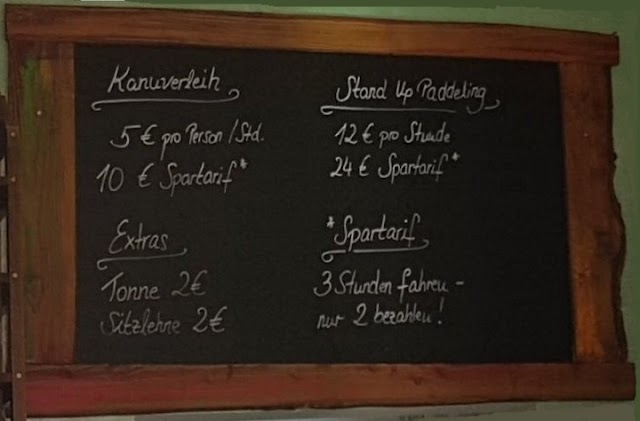 Kanuverleih
5 € pro Person / Std.
10 € Spartarif*
Extras
Tonne 2€
Sitzlehne 2€
Stand Up Paddeling
12 € pro Stunde
24 € Spartarif*
*Spartarif
3 Stunden fahren -
nur 2 bezahlen!